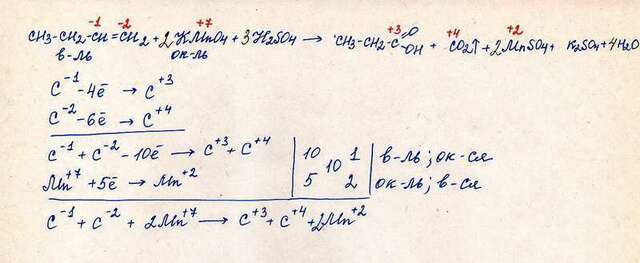 CH3-CH2-CH=CH2 + 2KMnO4 + 3H2SO4 → CH3-CH2-C=O-OH + CO2↑ + 2MnSO4 + K2SO4 + 4H2O
-1 -2 +7 +3 +4 +2
в-ль ок-ль
C-1 - 4ē → C+3
C-2 - 6ē → C+4
C-1 + C-2 - 10ē → C+3 + C+4 | 10 | 10 | 1 | в-ль; ок-ся
Mn+7 + 5ē → Mn+2 | 5 | 2 | ок-ль; в-ся
C-1 + C-2 + 2Mn+7 → C+3 + C+4 + 2Mn+2